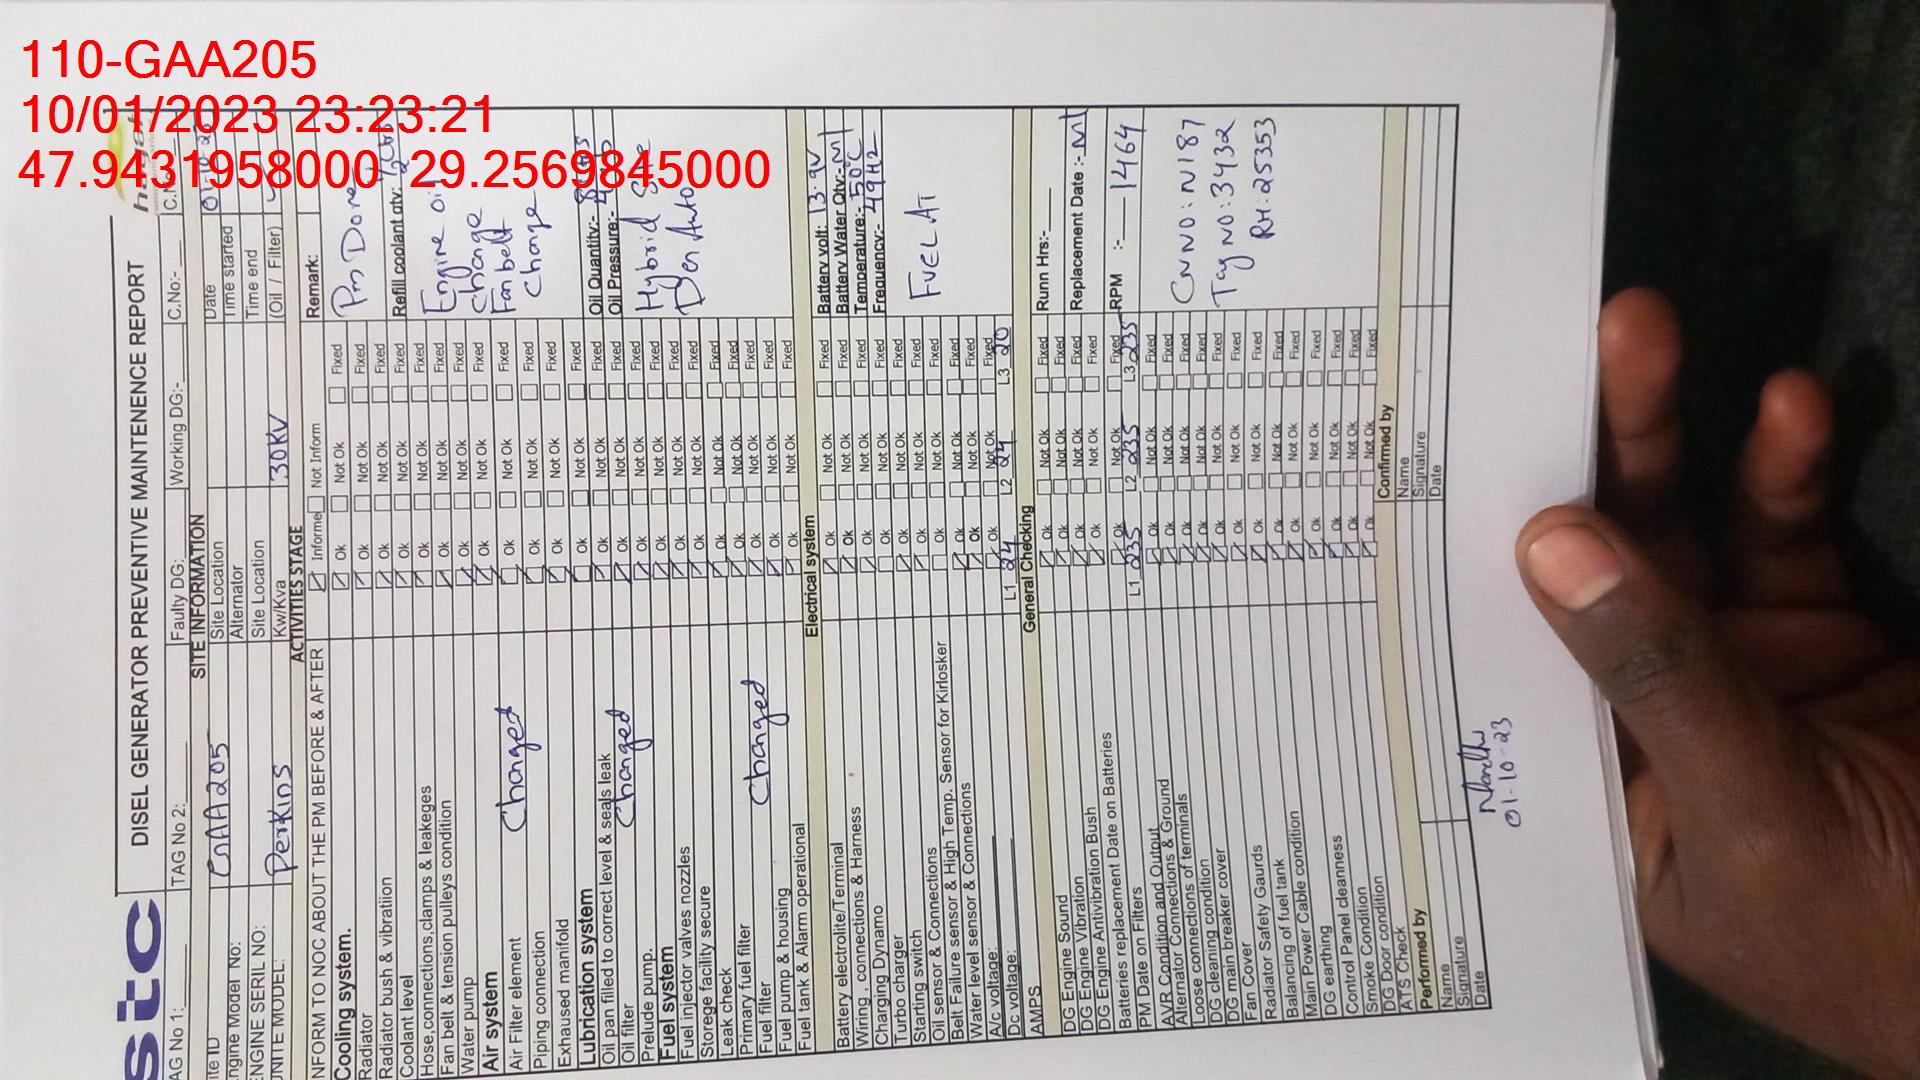 110-GAA205
10/01/2023 23:23:21
47.9431958000 29.2569845000
stc
DISEL GENERATOR PREVENTIVE MAINTENENCE REPORT
AG No 1: TAG No 2: Faulty DG: Working DG:- C.No:-
SITE INFORMATION
ite ID GAA205 Site Location Date 01-10-23
ngine Model No: Alternator Time started
NGINE SERIL NO: Site Location Time end
UNITE MODEL: Perkins Kw/Kva 30KV (Oil / Filter)
ACTIVITIES STAGE
NFORM TO NOC ABOUT THE PM BEFORE & AFTER Informe Not Inform Remark:
Cooling system. Ok Not Ok Fixed Pm Done
Radiator Ok Not Ok Fixed
Radiator bush & vibration Ok Not Ok Fixed
Coolant level Ok Not Ok Fixed Refill coolant qty:
Hose,connections,clamps & leakeges Ok Not Ok Fixed Engine oil
Fan belt & tension pulleys condition Ok Not Ok Fixed
Water pump Ok Not Ok Fixed change
Air system Ok Not Ok Fixed Fan belt
Air Filter element Changed Ok Not Ok Fixed change
Piping connection Ok Not Ok Fixed
Exhaused manifold Ok Not Ok Fixed
Lubrication system Ok Not Ok Fixed Oil Quantity:-
Oil pan filled to correct level & seals leak Ok Not Ok Fixed Oil Pressure:-
Oil filter Changed Ok Not Ok Fixed Hybrid Site
Prelude pump. Ok Not Ok Fixed
Fuel system Ok Not Ok Fixed Auto
Fuel injector valves nozzles Ok Not Ok Fixed
Storege facility secure Ok Not Ok Fixed
Leak check Ok Not Ok Fixed
Primary fuel filter Ok Not Ok Fixed
Fuel filter Changed Ok Not Ok Fixed
Fuel pump & housing Ok Not Ok Fixed
Fuel tank & Alarm operational
Electrical system
Battery electrolite/Terminal Ok Not Ok Fixed Battery volt: 13.9V
Wiring , connections & Harness Ok Not Ok Fixed Battery Water Qty:-
Charging Dynamo Ok Not Ok Fixed Temperature:- 50°C
Turbo charger Ok Not Ok Fixed Frequency:- 49Hz
Starting switch Ok Not Ok Fixed
Oil sensor & Connections Ok Not Ok Fixed FUEL AT
Belt Failure sensor & High Temp. Sensor for Kirlosker Ok Not Ok Fixed
Water level sensor & Connections Ok Not Ok Fixed
A/c voltage: Ok Not Ok Fixed
Dc voltage: L1 24 L2 24 L3 20
General Checking
AMPS Ok Not Ok Fixed Runn Hrs:-
DG Engine Sound Ok Not Ok Fixed
DG Engine Vibration Ok Not Ok Fixed Replacement Date :-
DG Engine Antivibration Bush Ok Not Ok Fixed
Batteries replacement Date on Batteries Ok Not Ok Fixed RPM :- 1464
PM Date on Filters L1 235 L2 235 L3 235
AVR Condition and Output Ok Not Ok Fixed
Alternator Connections & Ground Ok Not Ok Fixed
Loose connections of terminals Ok Not Ok Fixed CN NO: N187
DG cleaning condition Ok Not Ok Fixed
DG main breaker cover Ok Not Ok Fixed Tag NO: 3432
Fan Cover Ok Not Ok Fixed
Radiator Safety Gaurds Ok Not Ok Fixed RH: 25353
Balancing of fuel tank Ok Not Ok Fixed
Main Power Cable condition Ok Not Ok Fixed
DG earthing Ok Not Ok Fixed
Control Panel cleanness Ok Not Ok Fixed
Smoke Condition Ok Not Ok Fixed
DG Door condition
ATS Check
Performed by Confirmed by
Name Name
Signature Signature
Date Date
01-10-23